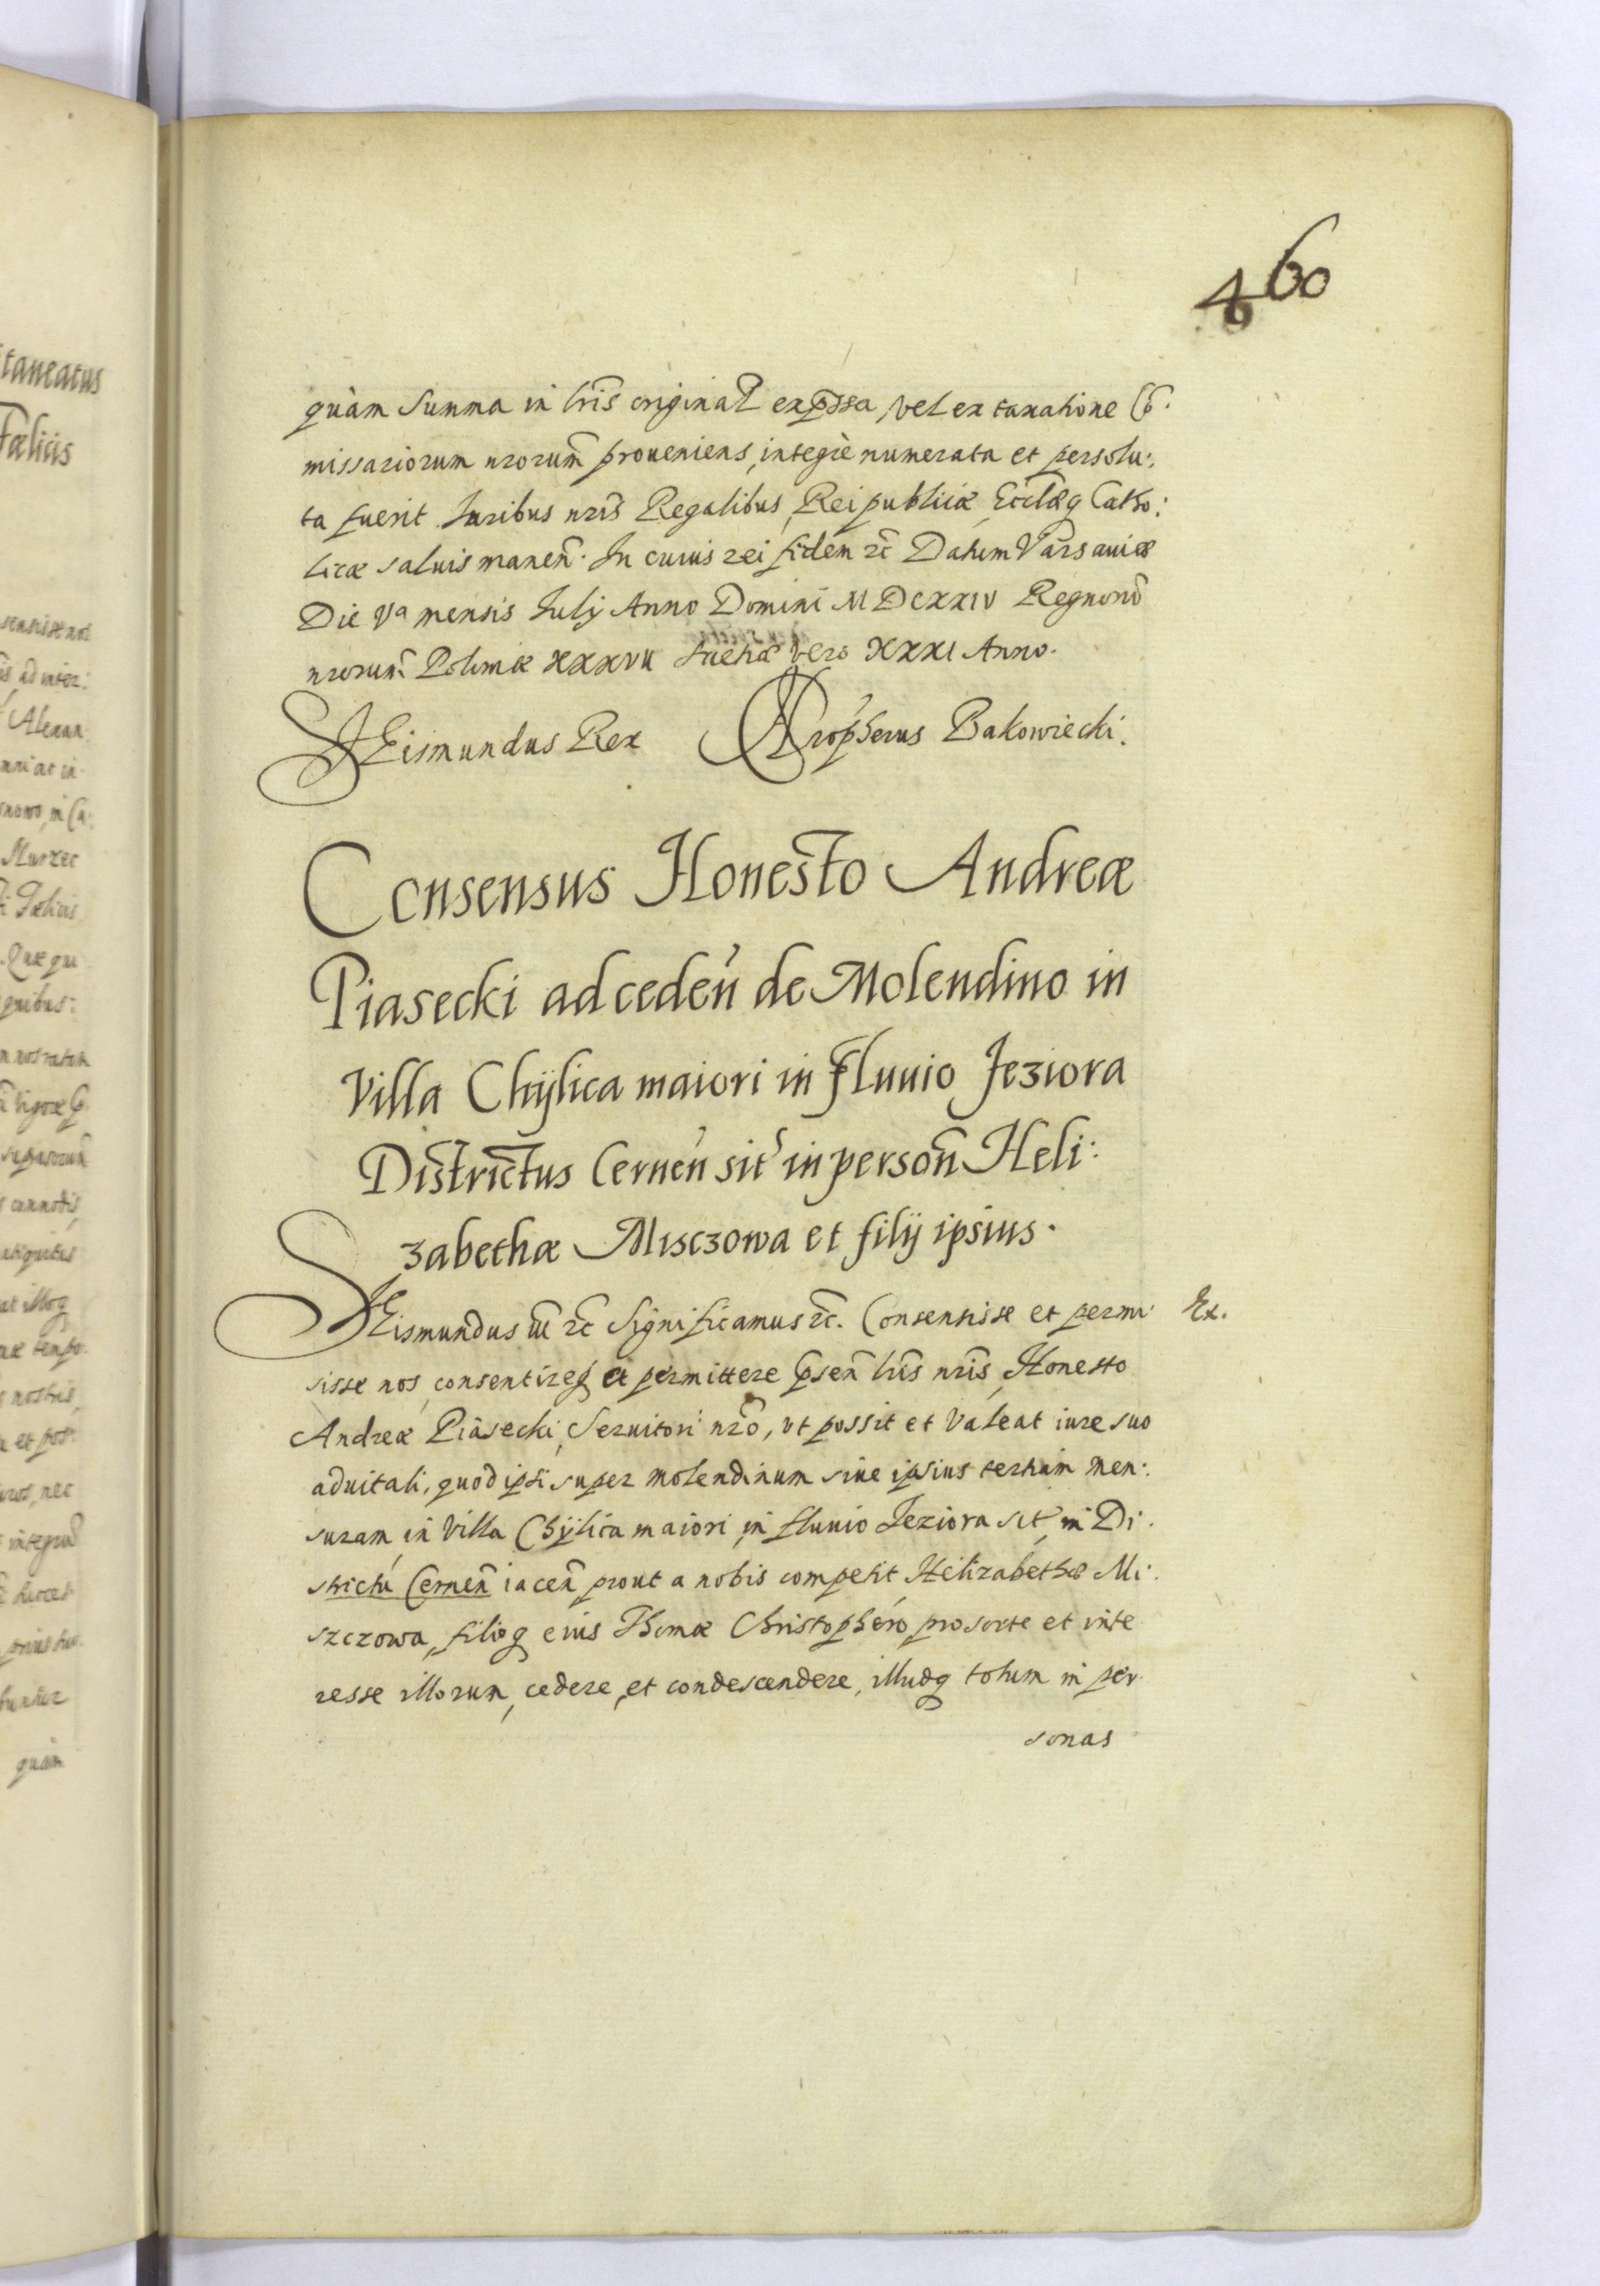 460
quàm summa in lr̃is original̃ exp̃ssa, vel ex taxatione Cõ:
missariorum nrorum̃ proueniens, integrè numerata et persolu:
ta fuerit Iuribus nr̃is Regalibus, Reipublicæ, Eccl̃æq Catho:
licæ saluis maneñ. In cuius rei fidem &c̃ Datum Varsauiæ
Die Vª mensis Iulij Anno Domini MDCXXIV Regnorũ
nrorum̃ Poloniæ XXXVII Sueciæ vero XXXI Anno.
SIGismundus Rex Xropherus Bakowiecki.
Consensus Honesto Andreæ
Piasecki ad cedeñ de Molendino in
Villa Chÿlica maiori in Fluuio Jeziora
Districtus Cerneñ sit̃ in persoñ Heli:
zabethæ Misczowa et filij ipsius.
SIGismundus III &c̃ Significamus &c̃. Consensisse et permi: Ex.
sisse nos, consentireq et permittere p̃señ lr̃is nr̃is, Honesto
Andreæ Piasecki, Seruitori nrõ, vt possit et valeat iure suo
aduitali, quod ipsi super molendinum siue ipsius tertiam men:
suram, in villa Chÿlica maiori, in fluuio Jeziora sit̃, in Di:
strictu Cerneñ iaceñ prout a nobis competit Helizabethæ Mi:
szczowa, filioq eius Thomæ Christophero, pro sorte et inte
resse illorum, cedere, et condescendere, illudq totum in per
sonas
taneatus
Fælicis
Alexan
Murzec
Quæ qu
quàm